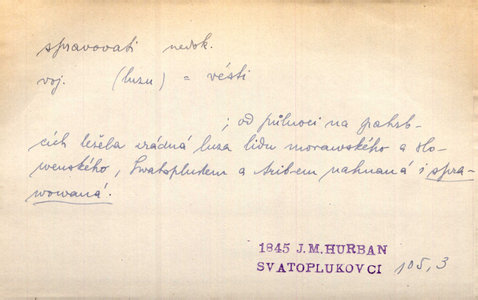 spravovati nedok.
voj. (luzu) = vésti
; od půlnoci na pahrb-
cích ležela zrádná luza lidu morawského a slo-
wenského, Swatoplukem a nahnaná i spra-
wowaná.
1845 J.M.HURBAN
SVATOPLUKOVCI 105,3